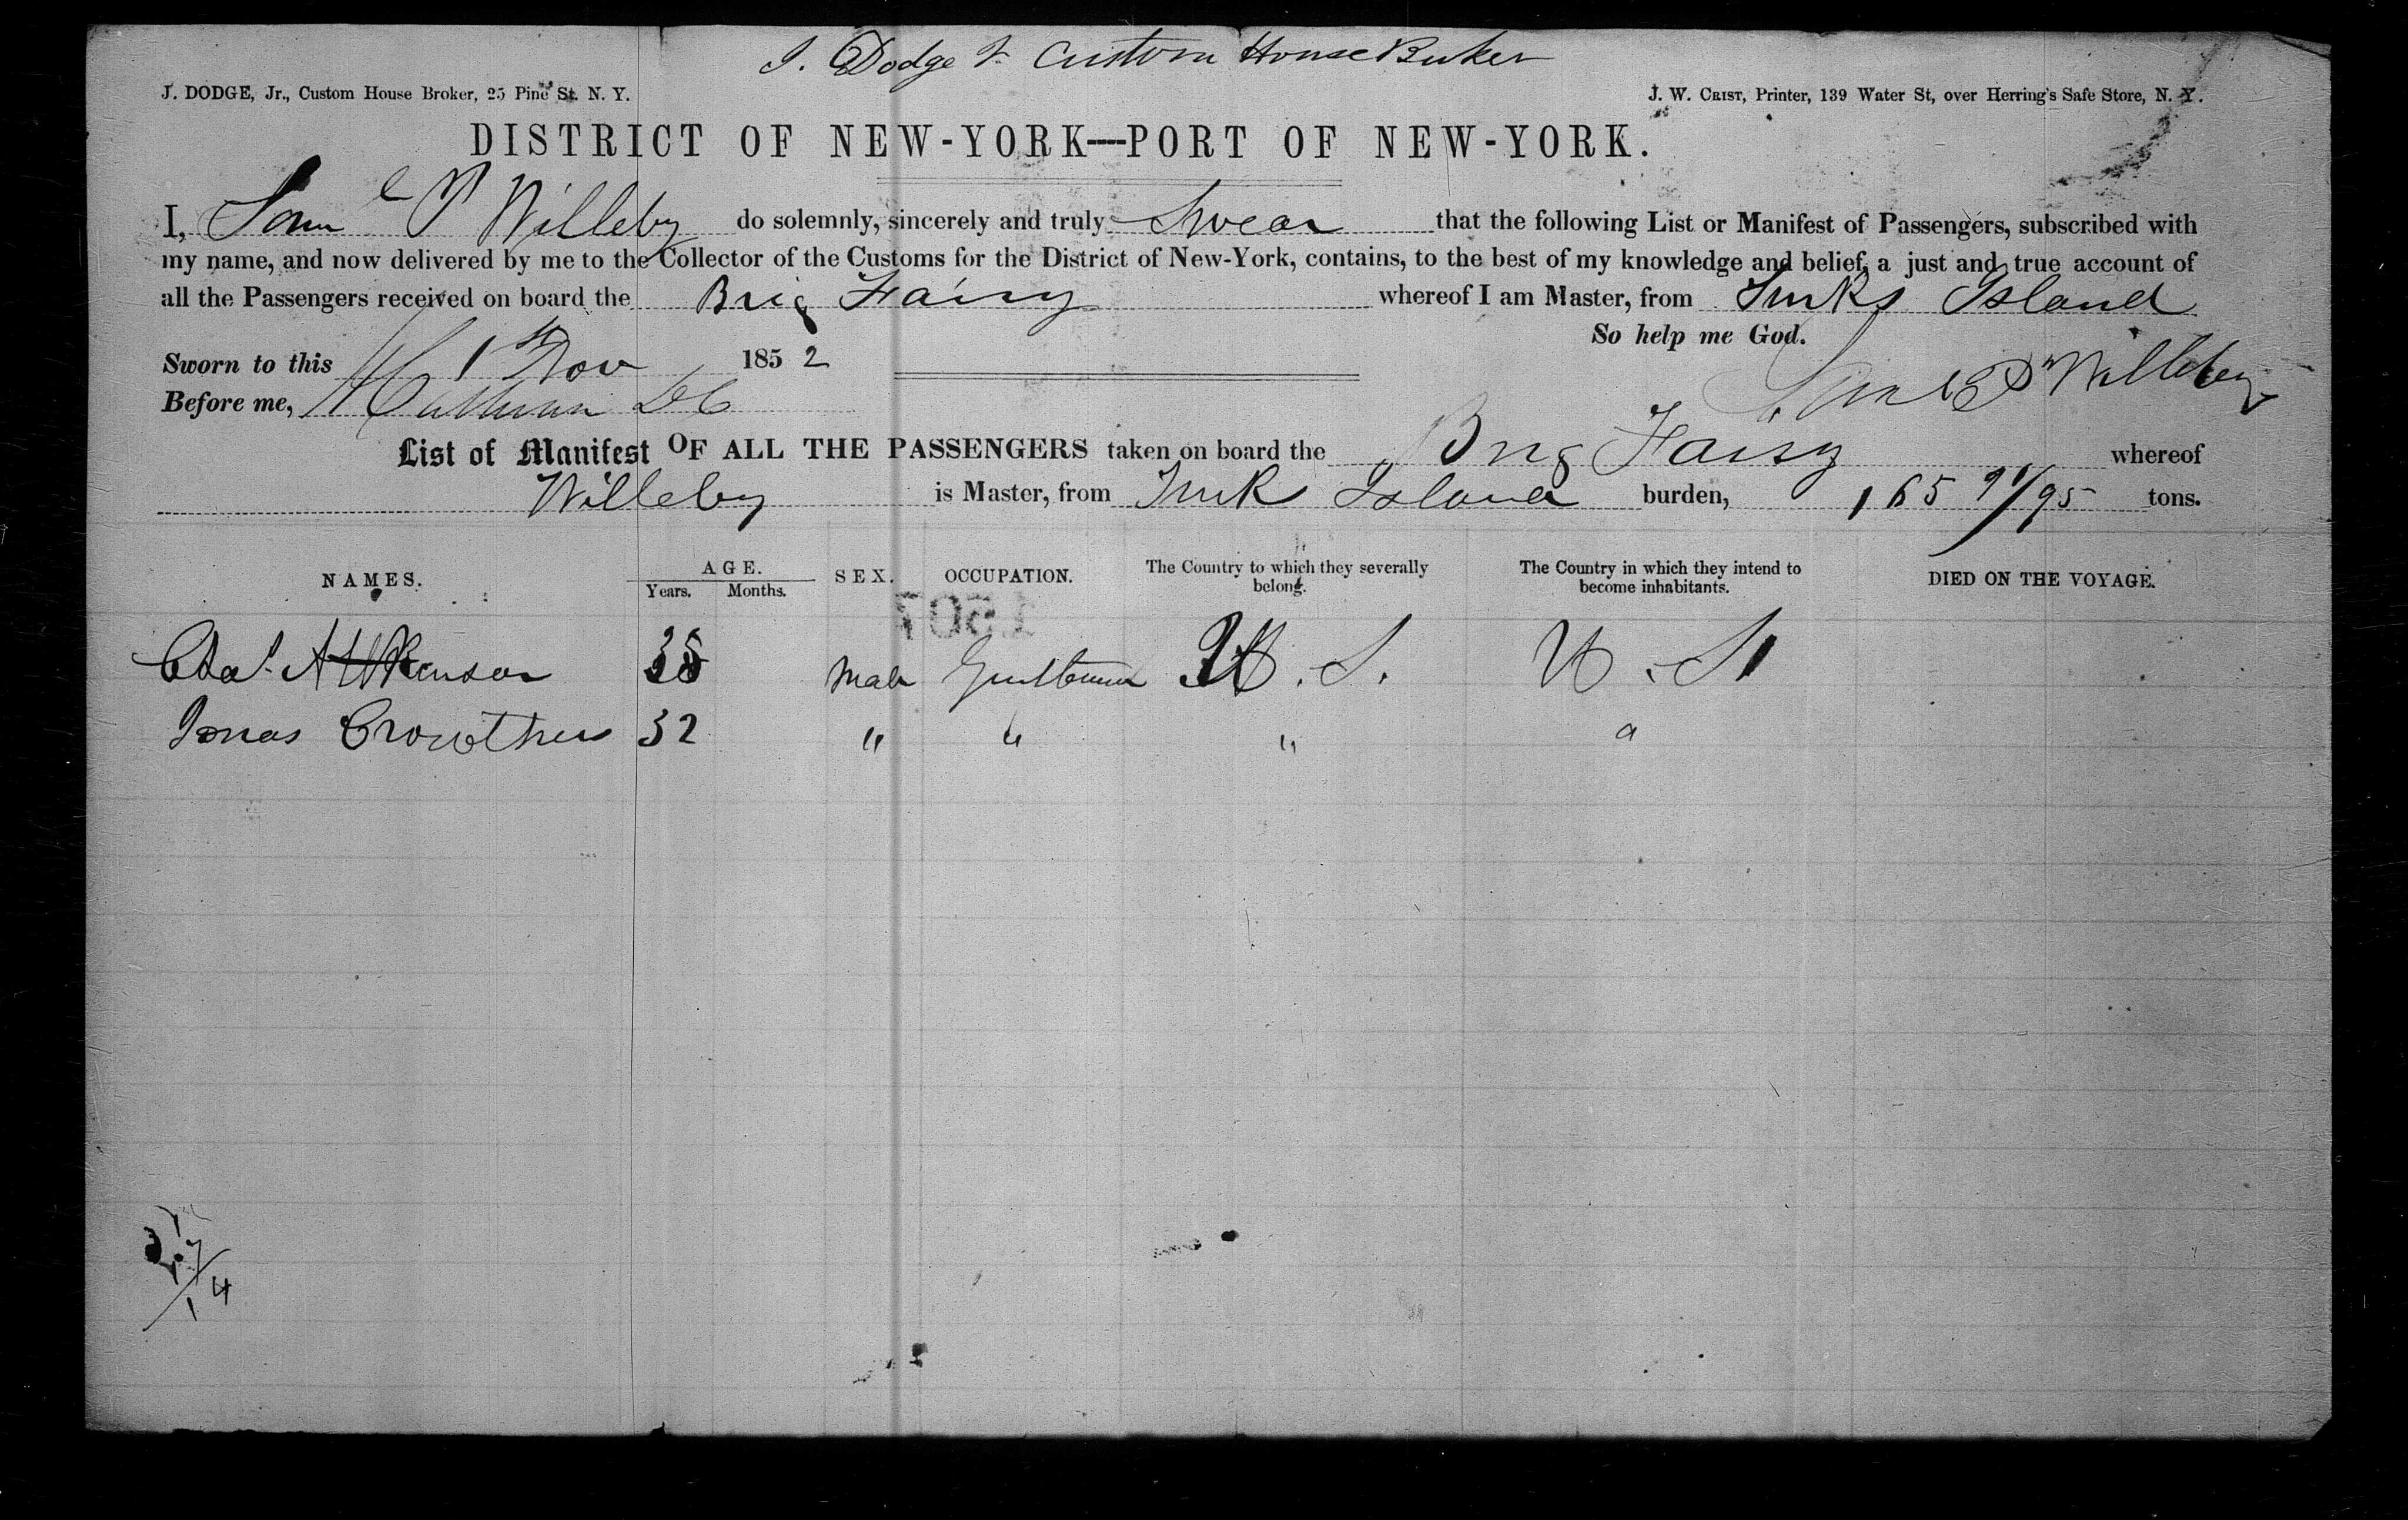 J. Dodge Jr Custom House Broker
J. DODGE, Jr., Custom House Broker, 25 Pine St. N. Y.
J. W. CRIST, Printer, 139 Water St, over Herring's Safe Store, N. Y.
DISTRICT OF NEW-YORK—PORT OF NEW-YORK.
I, Saml P Willeby do solemnly, sincerely and truly Swear that the following List or Manifest of Passengers, subscribed with
my name, and now delivered by me to the Collector of the Customs for the District of New-York, contains, to the best of my knowledge and belief, a just and true account of
all the Passengers received on board the Brig Fairy whereof I am Master, from Turks Island
So help me God.
Sworn to this 1st Nov 1852
Saml P Willeby
Before me,
List of Manifest OF ALL THE PASSENGERS taken on board the Brig Fairy whereof
Willeby is Master, from Turk Island burden, 165 91/95 tons.
NAMES. AGE. Years. Months. SEX. OCCUPATION. The Country to which they severally belong. The Country in which they intend to become inhabitants. DIED ON THE VOYAGE.
1507
Chas. Atkinson Male Gentleman U. S. U. S
Jonas Crowther 32 " " " "